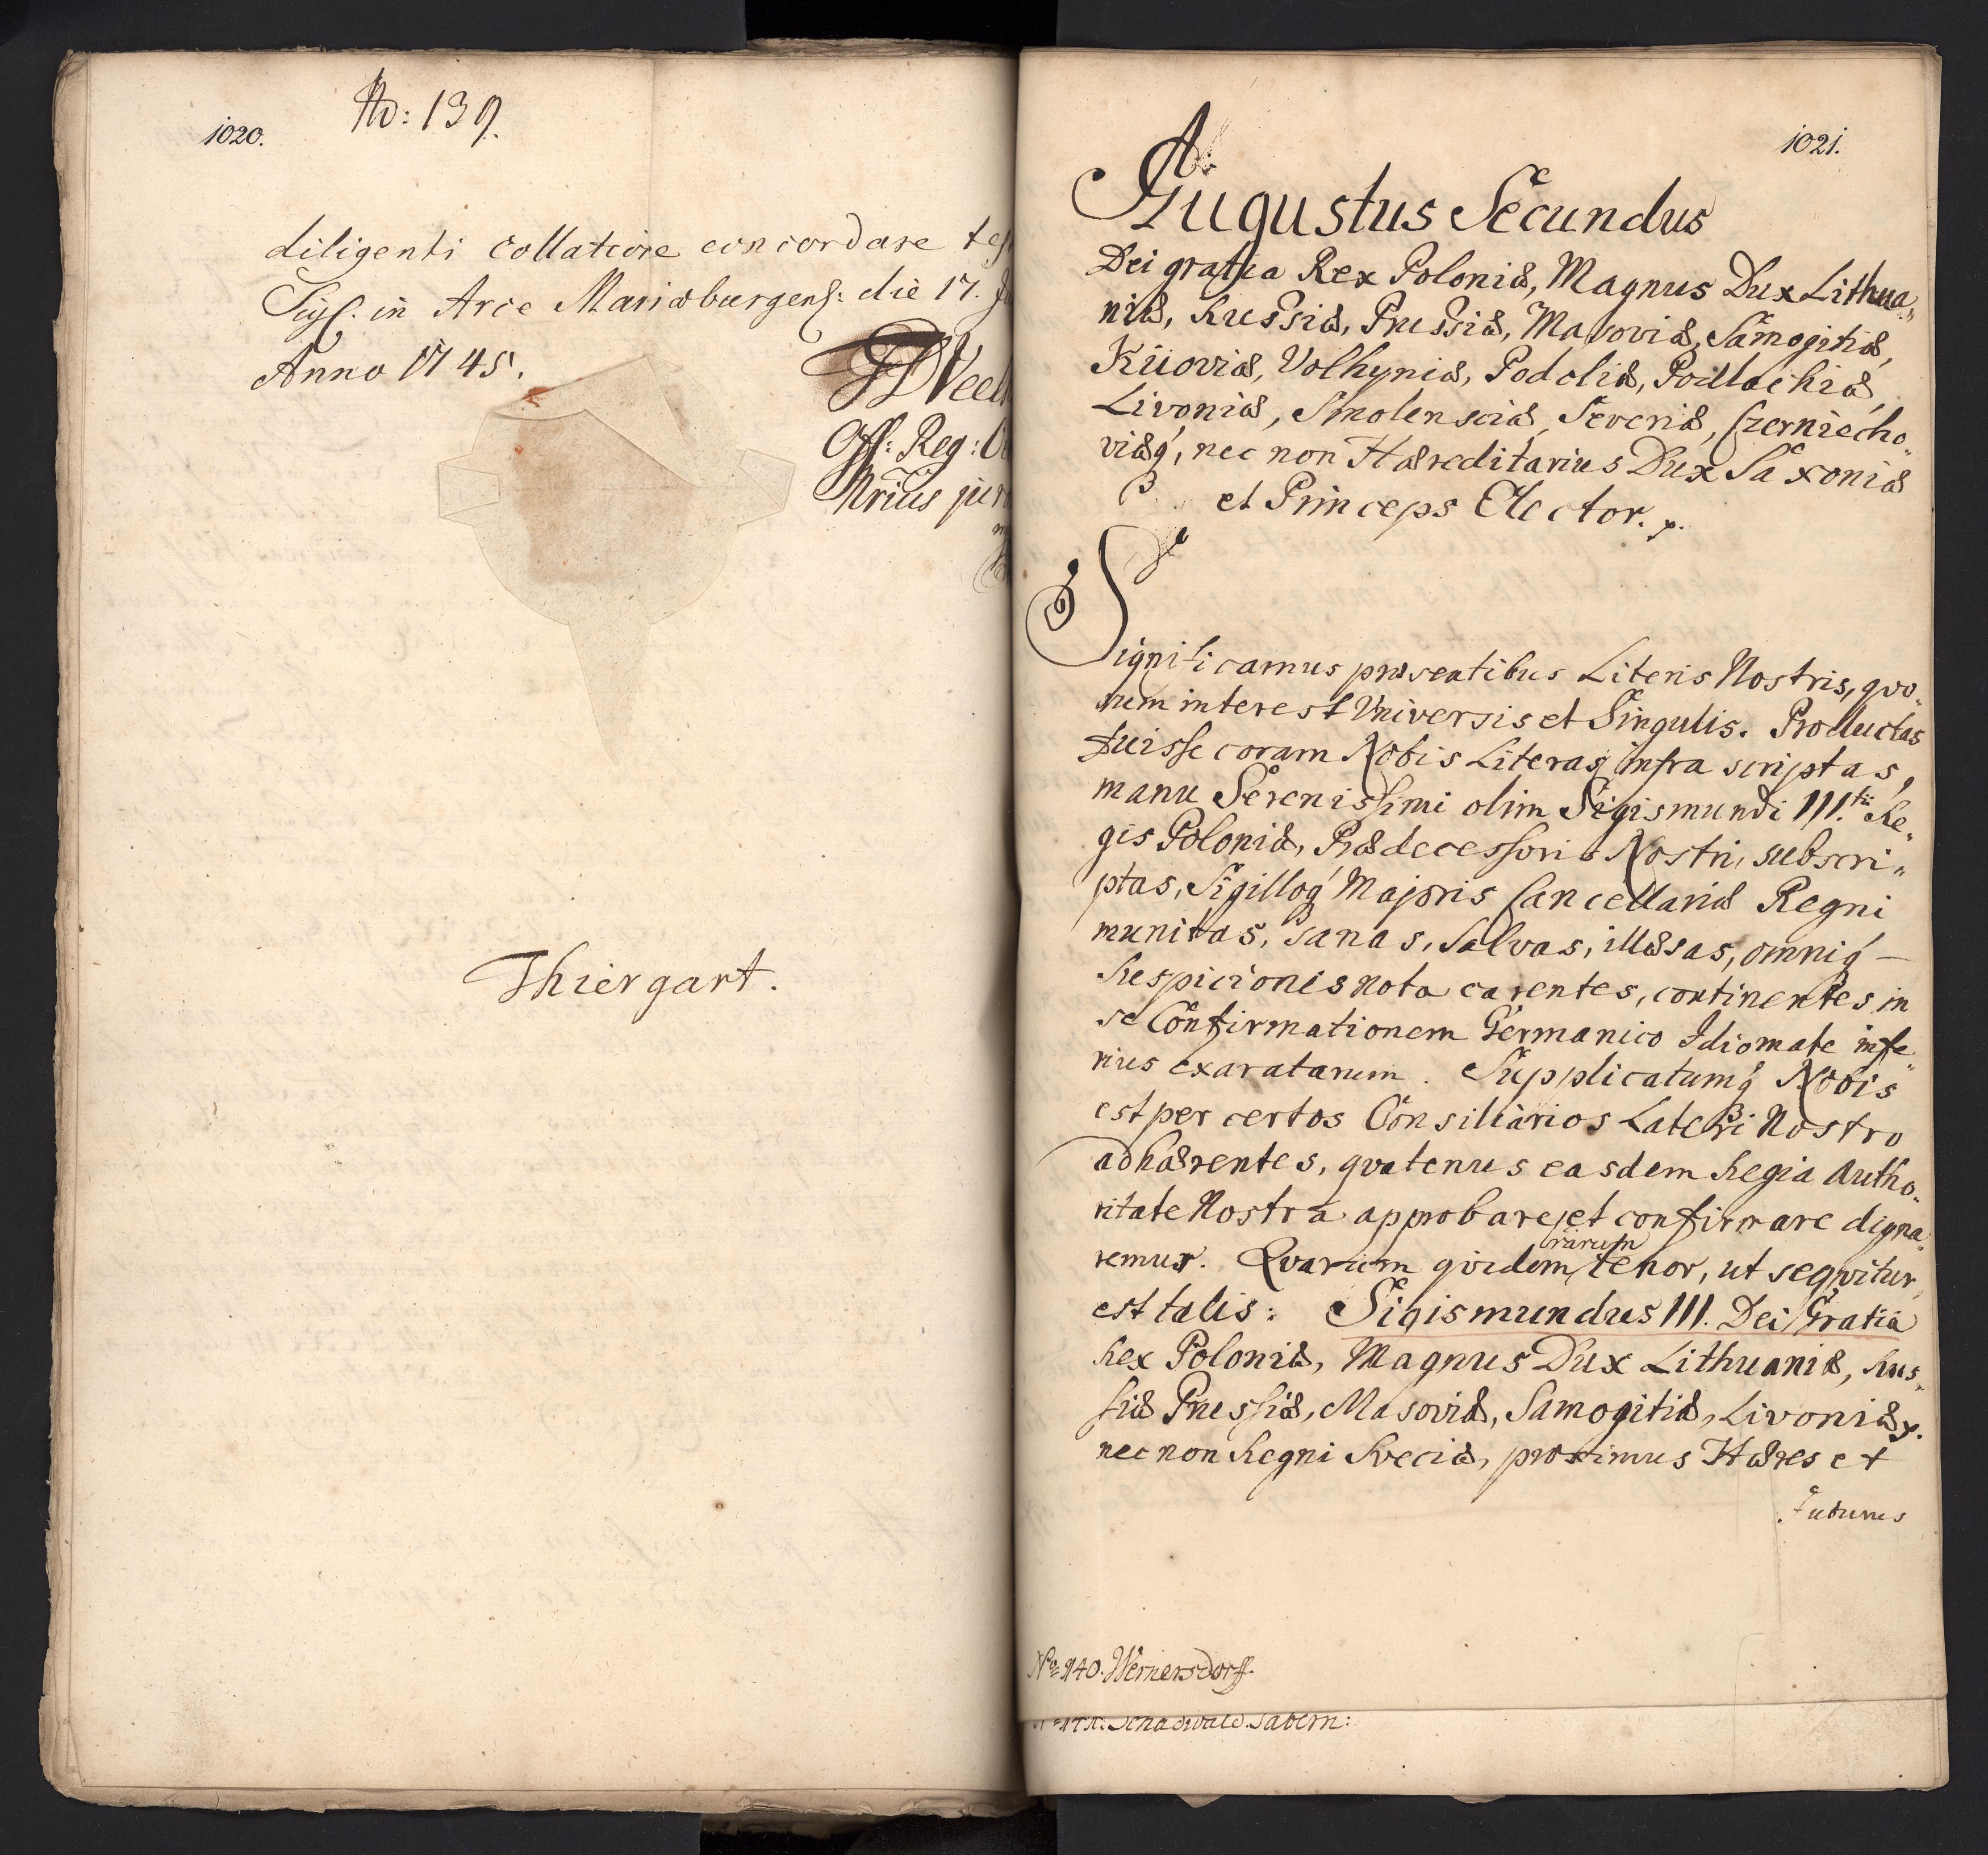 1020.
No: 139.
diligenti collatione concordare
Sigs. in Arce Mariæburgens: die 17.
Anno 1745.
Off: Reg:
Thiergart.
1021.
A.
Augustus Secundus
Dei gratia Rex Poloniæ, Magnus Dux Lithua„
niæ, Russiæ, Prussiæ, Masoviæ, Samogitiæ,
Kijoviæ, Volhyniæ, Podoliæ, Podlachiæ,
Livoniæ, Smolensciæ, Severiæ, Czerniecho„
viæq́, nec non Hæreditarius Dux Saxoniæ
et Princeps Elector.
Significamus præsentibus Literis Nostris, qvo„
rum interest Universis et Singulis. Productas
fuisse coram Nobis Literas infra scriptas,
manu Serenissimi olim Sigismundi III.tii Re„
gis Poloniæ, Prædecessoris Nostri, subscri„
ptas, Sigilloq́ Majoris Cancellariæ Regni
munitas, sanas, salvas, illæsas, omniq́ —
suspicionis nota carentes, continentes in
se Confirmationem Germanico Idiomate infe„
rius exaratarum. Supplicatumq́ Nobis
est per certos Consiliarios Lateri Nostro
adhærentes, qvatenus easdem Regia Autho„
ritate Nostra approbare et confirmare digna„
remur. Qvarum qvidem Lrarum tenor, ut seqvitur,
est talis: Sigismundus III. Dei Gratia
Rex Poloniæ, Magnus Dux Lithuaniæ, Rus„
siæ Prussiæ, Masoviæ, Samogitiæ, Livoniæ
nec non Regni Sveciæ, proximus Hæres et
futurus
No= 140. Wernersdorff.